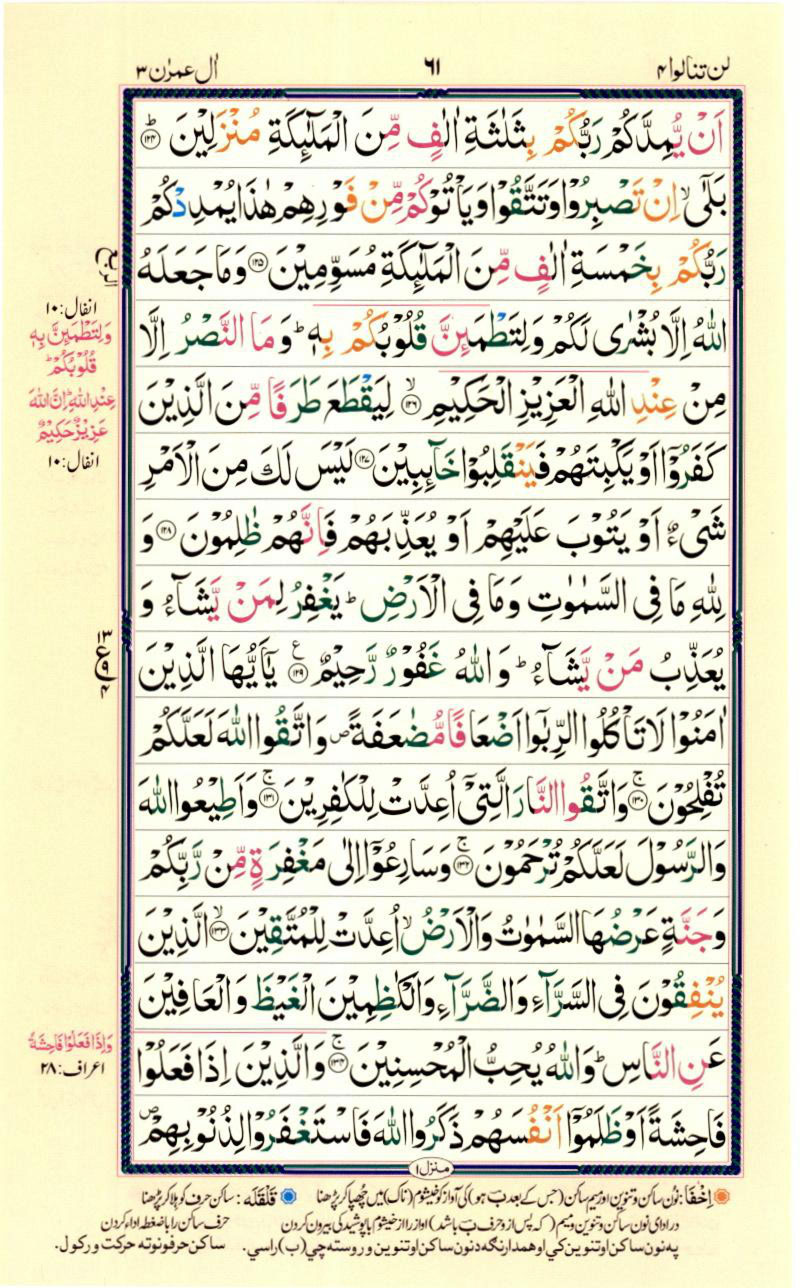 لن تنالوا ۴
۶۱
اٰل عمرٰن ۳
اَنْ يُّمِدَّكُمْ رَبُّكُمْ بِثَلٰثَةِ اٰلٰفٍ مِّنَ الْمَلٰٓئِكَةِ مُنْزَلِيْنَ ؕ﴿۱۲۴﴾
بَلٰٓى ۙ اِنْ تَصْبِرُوْا وَتَتَّقُوْا وَيَاْتُوْكُمْ مِّنْ فَوْرِهِمْ هٰذَا يُمْدِدْكُمْ
رَبُّكُمْ بِخَمْسَةِ اٰلٰفٍ مِّنَ الْمَلٰٓئِكَةِ مُسَوِّمِيْنَ ﴿۱۲۵﴾ وَمَا جَعَلَهُ
اللّٰهُ اِلَّا بُشْرٰى لَكُمْ وَلِتَطْمَئِنَّ قُلُوْبُكُمْ بِهٖ ؕ وَمَا النَّصْرُ اِلَّا
مِنْ عِنْدِ اللّٰهِ الْعَزِيْزِ الْحَكِيْمِ ۙ﴿۱۲۶﴾ لِيَقْطَعَ طَرَفًا مِّنَ الَّذِيْنَ
كَفَرُوْۤا اَوْ يَكْبِتَهُمْ فَيَنْقَلِبُوْا خَآئِبِيْنَ ﴿۱۲۷﴾ لَيْسَ لَكَ مِنَ الْاَمْرِ
شَيْءٌ اَوْ يَتُوْبَ عَلَيْهِمْ اَوْ يُعَذِّبَهُمْ فَاِنَّهُمْ ظٰلِمُوْنَ ﴿۱۲۸﴾ وَ
لِلّٰهِ مَا فِى السَّمٰوٰتِ وَمَا فِى الْاَرْضِ ؕ يَغْفِرُ لِمَنْ يَّشَآءُ وَ
يُعَذِّبُ مَنْ يَّشَآءُ ؕ وَاللّٰهُ غَفُوْرٌ رَّحِيْمٌ ﴿۱۲۹﴾ ع يٰۤاَيُّهَا الَّذِيْنَ
اٰمَنُوْا لَا تَاْكُلُوا الرِّبٰٓوا اَضْعَافًا مُّضٰعَفَةً ۪ وَاتَّقُوا اللّٰهَ لَعَلَّكُمْ
تُفْلِحُوْنَ ۚ﴿۱۳۰﴾ وَاتَّقُوا النَّارَ الَّتِىْۤ اُعِدَّتْ لِلْكٰفِرِيْنَ ۚ﴿۱۳۱﴾ وَاَطِيْعُوا اللّٰهَ
وَالرَّسُوْلَ لَعَلَّكُمْ تُرْحَمُوْنَ ۚ﴿۱۳۲﴾ وَسَارِعُوْۤا اِلٰى مَغْفِرَةٍ مِّنْ رَّبِّكُمْ
وَجَنَّةٍ عَرْضُهَا السَّمٰوٰتُ وَالْاَرْضُ ۙ اُعِدَّتْ لِلْمُتَّقِيْنَ ۙ﴿۱۳۳﴾ الَّذِيْنَ
يُنْفِقُوْنَ فِى السَّرَّآءِ وَالضَّرَّآءِ وَالْكٰظِمِيْنَ الْغَيْظَ وَالْعَافِيْنَ
عَنِ النَّاسِ ؕ وَاللّٰهُ يُحِبُّ الْمُحْسِنِيْنَ ۚ﴿۱۳۴﴾ وَالَّذِيْنَ اِذَا فَعَلُوْا
فَاحِشَةً اَوْ ظَلَمُوْۤا اَنْفُسَهُمْ ذَكَرُوا اللّٰهَ فَاسْتَغْفَرُوْا لِذُنُوْبِهِمْ ۪
انفال: ۱۰
وَلِتَطْمَئِنَّ بِهٖ
قُلُوْبُكُمْ ؕ
عِنْدِ اللّٰهِ ؕ اِنَّ اللّٰهَ
عَزِيْزٌ حَكِيْمٌ
انفال: ۱۰
۱۳
ع ۹
۴
وَاِذَا فَعَلُوْا فَاحِشَةً
اعراف: ۲۸
منزل ۱
اِخفَا: نُون ساکن و تنوین اور میم ساکن (جس کے بعد بَ ہو) کی آواز کو خیشوم (ناک) میں چُھپا کر پڑھنا قَلقَلَه: ساکن حرف کو ہلا کر پڑھنا
در ادای نون ساکن و تنوین و میم (که پس از و حرف بَ باشد) آواز را از خیشوم با پوشیدگی بیرون کردن حرف ساکن را با ضغطه اداء کردن
په نون ساکن او تنوین کي او همدا رنګه د نون ساکن او تنوین و روسته چي (ب) راسي. ساکن حرفو نو ته حرکت ورکول.